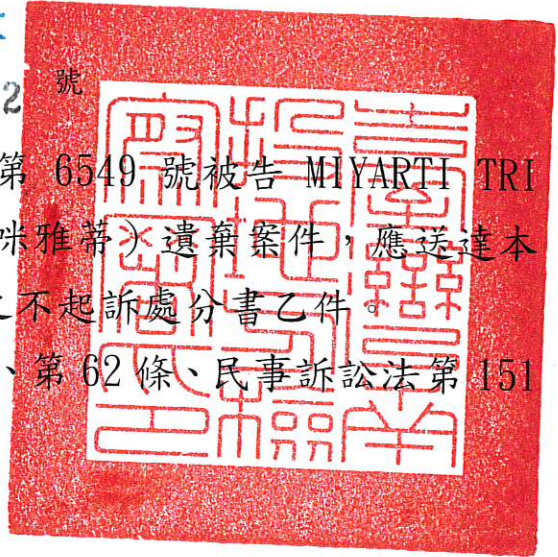 2 號
第 6549 號被告 MIYARTI TRI
咪雅蒂）遺棄案件，應送達本
之不起訴處分書乙件。
、第 62 條、民事訴訟法第 151